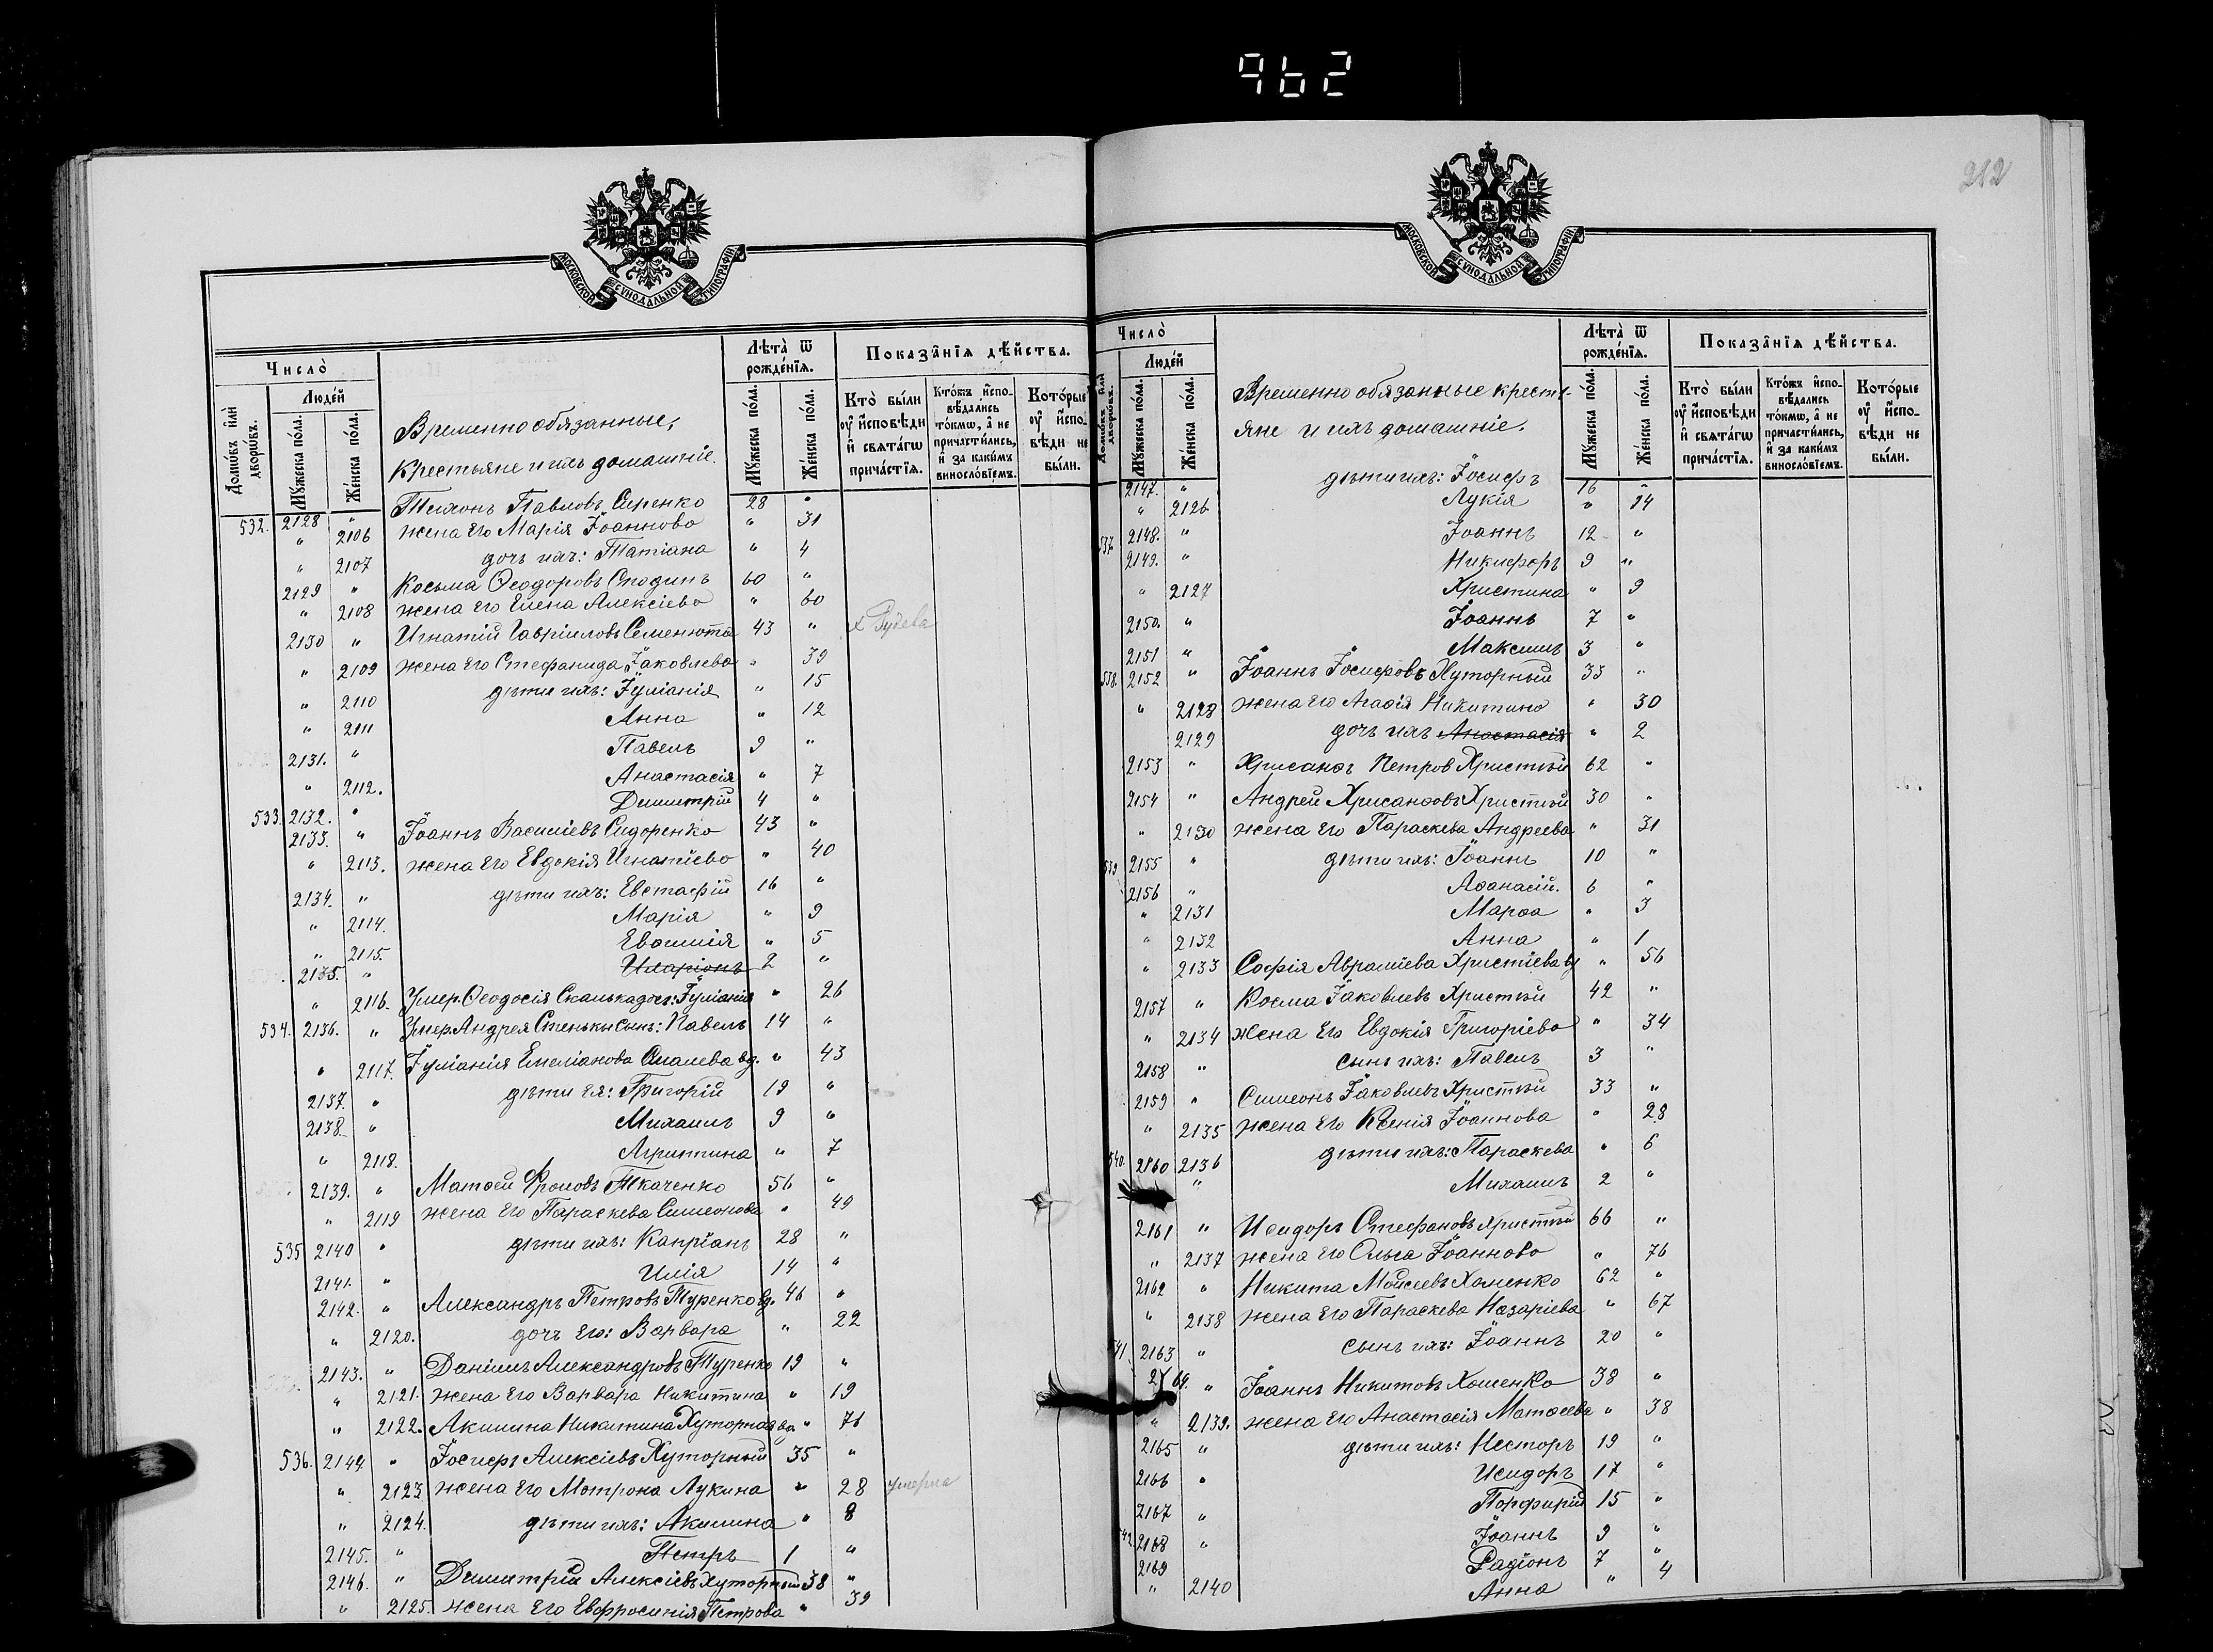 962
212
МОСКОВСКОЙ СУНОДАЛЬНОЙ ТИПОГРАФІИ
Число̀
Домѡ́въ и҆лѝ дворѡ́въ.
Люде́й
Мꙋ́жеска по́ла.
Же́нска по́ла.
Временнообязанные,
крестьяне и ихъ домашніе.
Лѣта̀ ѿ рожде́нїѧ.
Мꙋ́жеска по́ла.
Же́нска по́ла.
Показа̑нїѧ дѣ́йства.
Кто̀ бы́ли ᲂу҆ и҆́сповѣди и҆ свѧта́гѡ прича́стїѧ.
Кто́жъ и҆спо-вѣ́дались то́кмѡ, а҆ не причасти́лись, и҆ за каки́мъ винносло́вїемъ.
Кото́рые ᲂу҆ и҆́спо-вѣди не бы́ли.
532. 2128 " Тихонъ Павловъ 28 "
" 2106 жена его Марія Іоаннова " 31
" 2107 дочь ихъ: Татіана " 4
2129 " Косьма Ѳеодоровъ 60 "
" 2108 жена его Елена Алексіева " 60
2130 " Игнатій Гавріиловъ Семенюта 43 "
" 2109 жена его Стефанида Іаковлева " 39
" 2110 дѣти ихъ: Іуліанія " 15
" 2111 Анна " 12
2131. " Павелъ 9 "
" 2112. Анастасія " 7
533. 2132. " Димитрій 4 "
2133. " Іоаннъ Василіевъ Сидоренко 43 "
" 2113. жена его Евдокія Игнатіева " 40
2134. " дѣти ихъ: Евстафій 16 "
" 2114. Марія " 9
" 2115. Евѳимія " 5
2135. " Иларіонъ 2 "
" 2116. Умер. Ѳеодосія дочь: Іуліанія " 26
534. 2136. " Умер. Андрея Стеньки сынъ: Павелъ 14 "
" 2117. Іуліанія Емеліанова вд. " 43
2137. " дѣти ея: Григорій 19 "
2138. " Михаилъ 9 "
" 2118. Агриппина " 7
2139. " Матѳей Фроловъ Ткаченко 56 "
" 2119 жена его Параскева Симеонова " 49
535 2140 " дѣти ихъ: Капріанъ 28 "
2141. " Илія 14 "
2142. " Александръ Петровъ Туренко вд. 46 "
" 2120. дочь его: Варвара " 22
2143. " Даніилъ Александровъ Туренко 19 "
" 2121. жена его Варвара Никитина " 19
" 2122. Акилина Никитина Хуторная вд. " 76
536. 2144 " Іосифъ Алексіевъ Хуторный 35 "
" 2123. жена его Мотрона Лукина " 28 умерла
" 2124. дѣти ихъ: Акилина " 8
2145. " Петръ 1 "
2146. " Димитрій Алексіевъ Хуторный 38 "
" 2125. жена его Евфросинія Петрова " 39
МОСКОВСКОЙ СУНОДАЛЬНОЙ ТИПОГРАФІИ
Число̀
Домѡ́въ и҆лѝ дворѡ́въ.
Люде́й
Мꙋ́жеска по́ла.
Же́нска по́ла.
Временнообязанные кресть-
яне и ихъ домашніе.
Лѣта̀ ѿ рожде́нїѧ.
Мꙋ́жеска по́ла.
Же́нска по́ла.
Показа̑нїѧ дѣ́йства.
Кто̀ бы́ли ᲂу҆ и҆́сповѣди и҆ свѧта́гѡ прича́стїѧ.
Кто́жъ и҆спо-вѣ́дались то́кмѡ, а҆ не причасти́лись, и҆ за каки́мъ винносло́вїемъ.
Кото́рые ᲂу҆ и҆́спо-вѣди не бы́ли.
2147. " дѣти ихъ: Іосифъ 16 "
" 2126 Лукія " 14
537. 2148. " Іоаннъ 12 "
2149. " Никифоръ 9 "
" 2127 Христина " 9
2150. " Іоаннъ 7 "
2151 " Максимъ 3 "
538. 2152 " Іоаннъ Іосифовъ Хуторный 33 "
" 2128 жена его Агаѳія Никитина " 30
2129 дочь ихъ Анастасія " 2
2153 " Хрисанѳъ Петров Христѣй 62 "
2154 " Андрей Хрисанѳовъ Христѣй 30 "
" 2130 жена его Параскева Андреева " 31
539 2155 " дѣти ихъ: Іоаннъ 10 "
2156 " Аѳанасій. 6 "
" 2131 Марѳа " 3
" 2132 Анна " 1
" 2133 Софія Авраміева Христіева вд " 56
2157 " Косма Іаковлевъ Христѣй 42 "
" 2134 жена его Евдокія Григоріева " 34
2158 " сынъ ихъ: Павелъ 3 "
2159 " Симеонъ Іаковлевъ Христѣй 33 "
" 2135 жена его Ксенія Іоаннова " 28
540. 2160 2136 дѣти ихъ: Параскева " 6
" Михаилъ 2 "
2161 " Исидоръ Стефановъ Христѣй 66 "
" 2137 жена его Ольга Іоаннова " 76
2162 " Никита Моисеевъ Хоменко 62 "
" 2138 жена его Параскева Назаріева " 67
541. 2163 " сынъ ихъ: Іоаннъ 20 "
2164. " Іоаннъ Никитовъ Хоменко 38 "
" 2139. жена его Анастасія Матѳеева " 38
2165 " дѣти ихъ: Несторъ 19 "
2166 " Исидоръ 17 "
2167 " Порфирій 15 "
542. 2168 " Іоаннъ 9 "
2169 Радіонъ 7 "
" 2140 Анна " 4